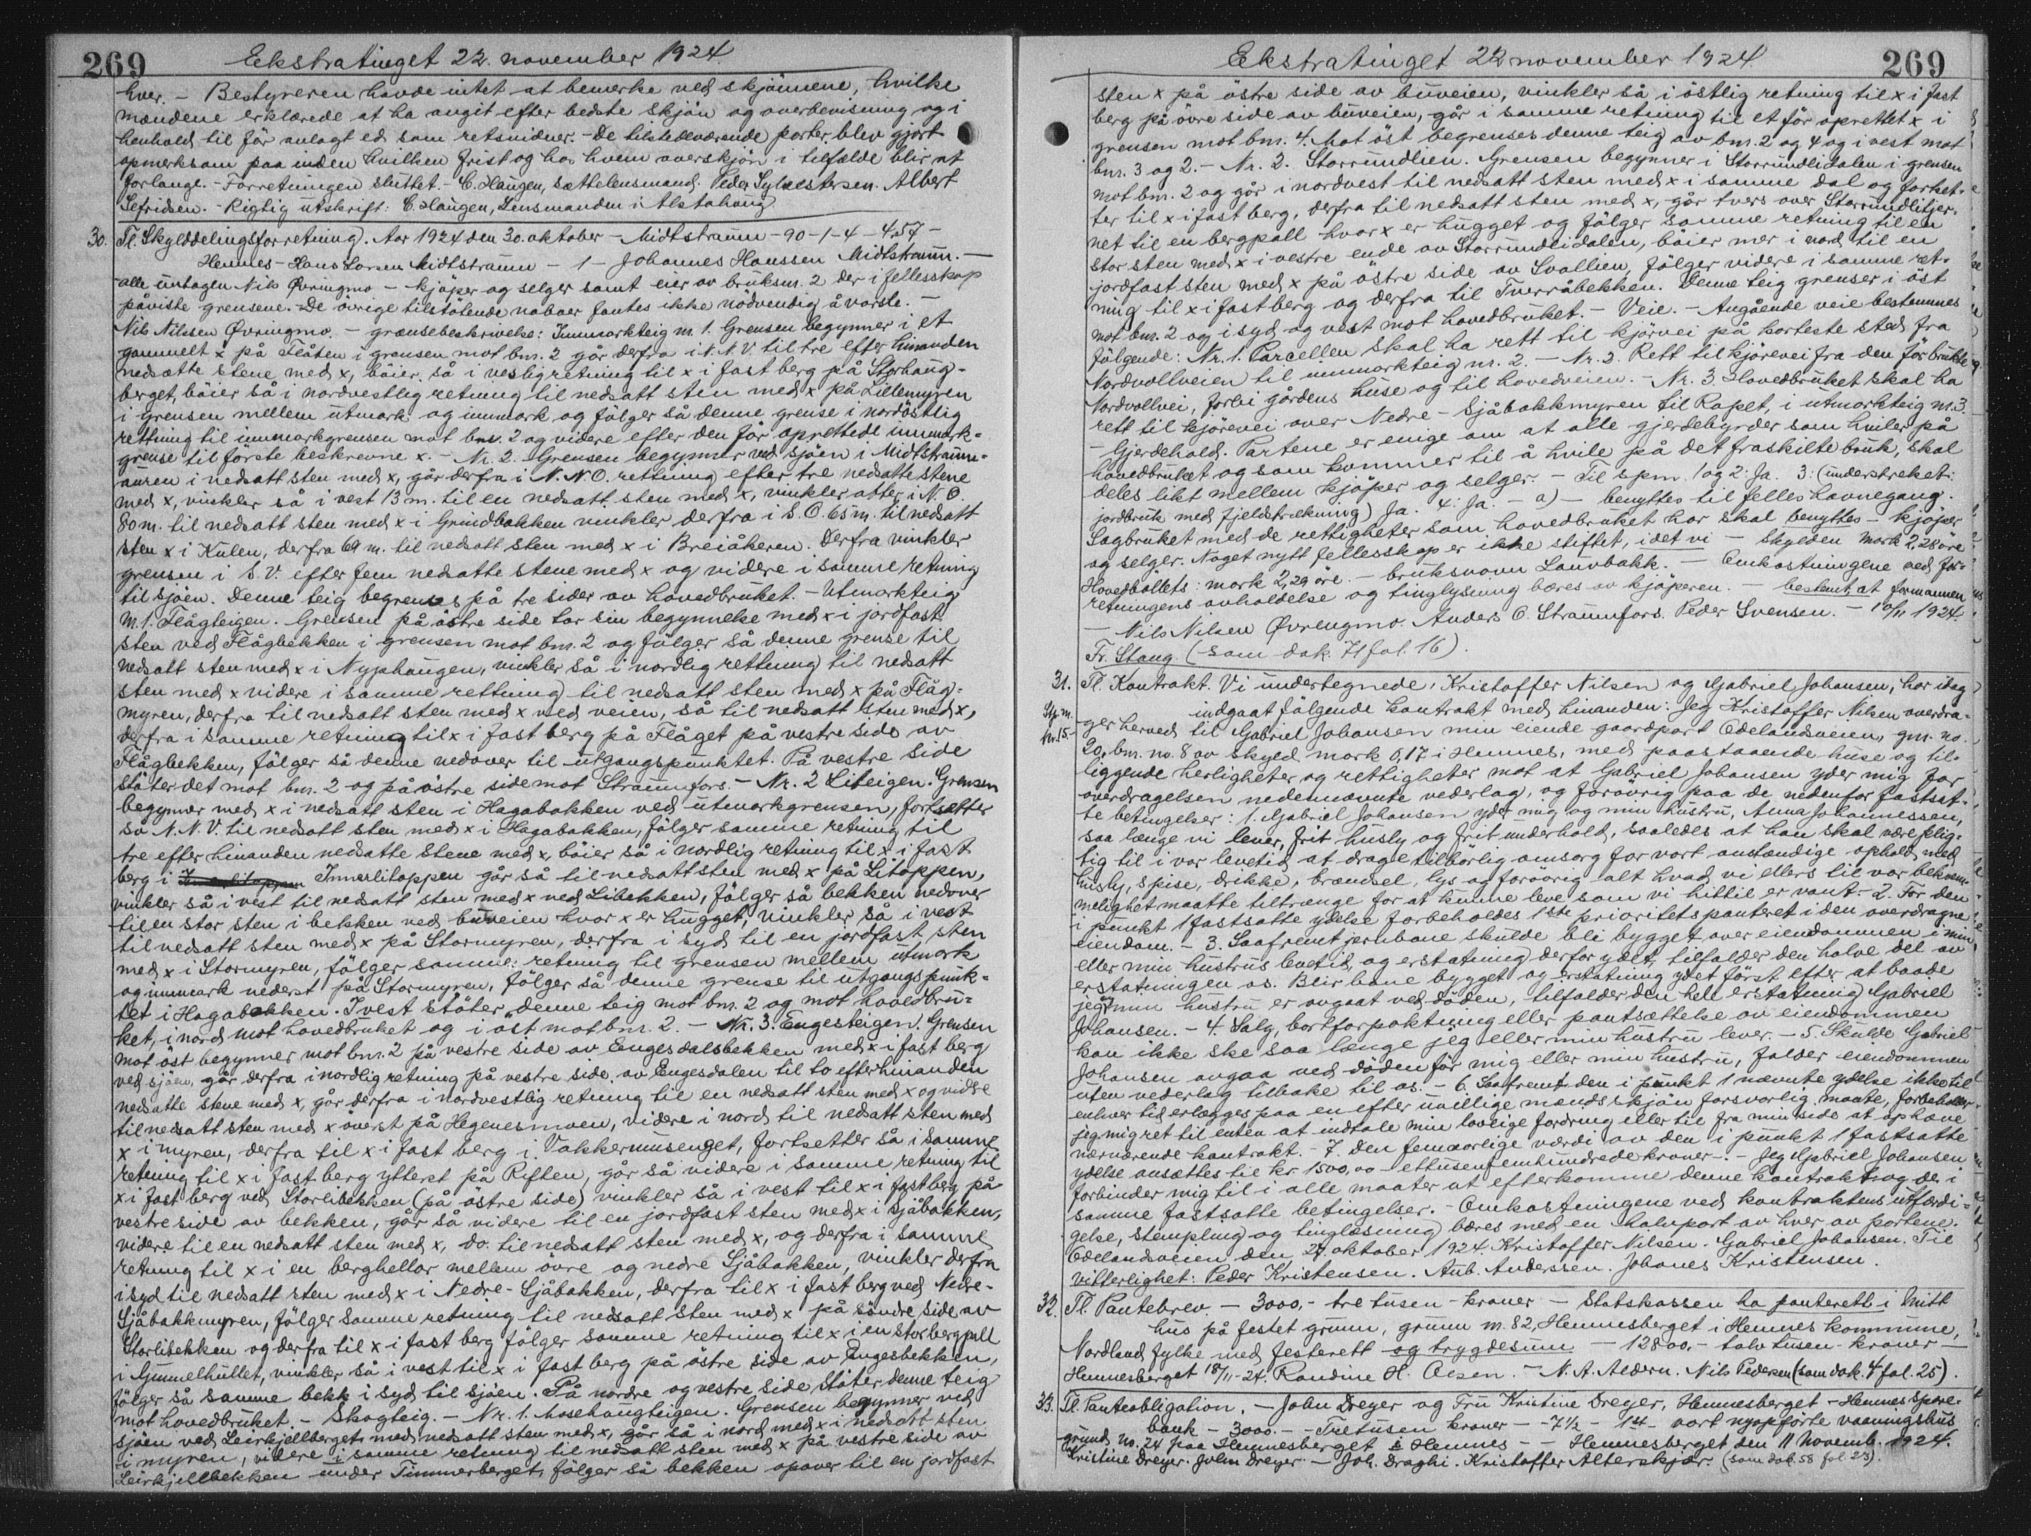 269
Ekstratinget 22. november 1924.
hver. - Bestyreren havde intet at bemerke ved skjønnene, hvilke
mændene erklærede at ha angit efter bedste skjøn og overbevisning og i
henhold til før avlagt ed som retsvidner. - De tilstedeværende parter blev gjort
opmerksom paa inden hvilken frist og hos hvem overskjøn i tilfælde blir at
forlange. - Forretningen sluttet. - C. Haugen, sættelensmand. Peder Sylvestersen. Albert
Sefridsen. - Rigtig utskrift: C. Haugen, Lensmanden i Alstahaug
30. Tl. Skylddelingsforretning. Aar 1924 den 30. oktober - Midtstraum - 90 - 1 - 4 - 4,57 -
Hemnes - Hans Larsen Midtstraum - 1 - Johannes Hanssen Midtstraum. -
- alle untagen Nils Øvringmo - kjøper og selger samt eier av bruksnr. 2 der i fellesskap
påviste grensene. De øvrige tilstøtende naboer fantes ikke nødvendig å varsle. -
Nils Nilsen Øvringmo. - grænsebeskrivelse: Innmarkteig nr. 1. Grensen begynner i et
gammelt x på Flåten i grensen mot bnr. 2 går derfra i N.N.V. til tre efter hinanden
nedsatte stene med x, bøier så i vestlig retning til x i fast berg på Storhaug-
berget, bøier så i nordvestlig retning til nedsatt sten med x på Lillemyren
i grensen mellem utmark og innmark og følger så denne grense i nordøstlig
rettning til innmarkgrensen mot bnr. 2 og videre efter den før oprettede innmark-
grense til første beskrevne x. - Nr. 2. Grensen begynner ved sjøen i Midtstraum-
auren i nedsatt sten med x, går derfra i N.N.O. rettning efter tre nedsatte stene
med x, vinkler så i vest 13 m. til en nedsatt sten med x, vinkler atter i N.O.
80 m. til nedsatt sten med x i Grindbakken vinkler derfra i S.O. 65 m. til nedsatt
sten x i Kulen, derfra 69 m. til nedsatt sten med x i Breiåkeren. Derfra vinkler
grensen i S.V. efter fem nedsatte stene med x og videre i samme retning
til sjøen. Denne teig begrenses på tre sider av hovedbruket. - Utmarkteig
nr. 1. Flågteigen. Grensen på østre side tar sin begynnelse med x i jordfast
sten ved Flågbekken i grensen mot bnr. 2 og følger så denne grense til
nedsatt sten med x i Nypahaugen, vinkler så i nordlig rettning til nedsatt
sten med x videre i samme rettning til nedsatt sten med x på Flåg-
myren, derfra til nedsatt sten med x ved veien, så til nedsatt sten med x,
derfra i samme retning til x i fast berg på Flåget på vestre side av
Flågbekken, følger så denne nedover til utgangspunktet. På vestre side
støter det mot bnr. 2 og på østre side mot Straumfors. - Nr. 2 Liteigen. Grensen
begynner med x i nedsatt sten i Hagabakken ved utmarkgrensen, fortsetter
så N.N.V. til nedsatt sten med x i Hagabakken, følger samme retning til
tre efter hinanden nedsatte stene med x, bøier så i nordlig retning til x i fast
berg i Innerlitoppen går så til nedsatt sten med x på Litoppen,
vinkler så i vest til nedsatt sten med x ved Libekken, følger så bekken nedover
til en stor sten i bekken ved buveien hvor x er hugget, vinkler så i vest
til nedsatt sten med x på Stormyren, derfra i syd til en jordfast sten
med x i Stormyren, følger samme retning til grensen mellem utmark
og innmark nederst på Stormyren, følger så denne grense til utgangspunk-
tet i Hagabakken. I vest støter denne teig mot bnr. 2 og mot hovedbru-
ket, i nord mot hovedbruket og i øst mot bnr. 2. - Nr. 3. Engesteigen. Grensen
mot øst begynner mot bnr. 2 på vestre side av Engesdalsbekken med x i fast berg
ved sjøen, går derfra i nordlig retning på vestre side av Engesdalen til to efter hinanden
nedsatte stene med x, går derfra i nordvestlig retning til en nedsatt sten med x og videre
til nedsatt sten med x øverst på Hegenesmoen, videre i nord til nedsatt sten med
x i myren, derfra til x i fast berg i Vakkermusenget, fortsetter så i samme
retning til x i fast berg ytterst på Riften, går så videre i samme retning til
x i fast berg ved Storlibekken (på østre side) vinkler så i vest til x i fast berg på
vestre side av bekken, går så videre til en jordfast sten med x i sjåbakken,
videre til en nedsatt sten med x, do. til nedsatt sten med x, og derfra i samme
retning til x i en berghellar mellem øvre og nedre Sjåbakken, vinkler derfra
i syd til nedsatt sten med x i Nedre-Sjåbakken, derfra til x i fast berg ved Nedre-
Sjåbakkmyren, følger samme retning til nedsatt sten med x på søndre side av
Storlibekken og derfra til x i fast berg følger samme retning til x i en stor bergpall
i Gimmelhullet, vinkler så i vest til x i fast berg på østre side av Engesbekken,
følger så samme bekk i syd til sjøen. På nordre og vestre side støter denne teig
mot hovedbruket. - Skogteig. - Nr. 1. Mosehaugteigen. Grensen begynner ved
sjøen ved Leirkjellberget med nedsatt sten med x, går så i nord med x i nedsatt sten
i myren, videre i samme retning til nedsatt sten med x på vestre side av
Leirkjellbekken under Timmerberget, følger så bekken opover til en jordfast
Ekstratinget 22 november 1924.
269
sten x på østre side av buveien, vinkler så i østlig retning til x i fast
berg på øvre side av buveien, går i samme retning til et før oprettet x i
grensen mot bnr. 4. Mot øst begrenses denne teig av bnr. 2 og 4 og i vest mot
bnr. 3 og 2. - Nr. 2. Storrundlien. Grensen begynner i Storrundlidalen i grensen
mot bnr. 2 og går i nordvest til nedsatt sten med x i samme dal og fortset-
ter til x i fast berg, derfra til nedsatt sten med x, går tvers over Storrundlitjer-
net til en bergpall hvor x er hugget og følger samme retning til en
stor sten med x i vestre ende av Storrundlidalen, bøier mer i nord til en
jordfast sten med x på østre side av Svallien, følger videre i samme ret-
ning til x i fast berg og derfra til Tverråbekken. Denne teig grenser i øst
mot bnr. 2 og i syd og vest mot hovedbruket. - Veie. - Angående veie bestemmes
følgende: Nr. 1. Parcellen skal ha rett til kjørvei på korteste sted fra
Nordvollveien til innmarkteig nr. 2. - Nr. 2. Rett til kjørevei fra den før brukte
Nordvollvei, forbi gårdens huse og til hovedveien. - Nr. 3. Hovedbruket skal ha
rett til kjørevei over Nedre-Sjåbakkmyren til Rapet, i utmarkteig nr. 3.
- Gjerdehold. Partene er enige om at alle gjerdebyrder som hviler på
hovedbruket og som kommer til å hvile på det fraskilte bruk, skal
deles likt mellem kjøper og selger. - Til spm. 1 og 2: Ja. 3: (understreket:
jordbruk med fjelstrekning) Ja. 4: Ja. - a) - benyttes til felles havnegang.
Sagbruket med de rettigheter som hovedbruket har skal benyttes - kjøper
og selger. Noget nytt fellesskap er ikke stiftet, idet vi - Skylden mark 2,28 øre
Hovedbøllets: mark 2,29 øre. - bruksnavn Lauvbakk. - Omkostningene ved for-
retningens avholdelse og tinglysning bæres av kjøperen. - bestemt, at formannen
- Nils Nilsen Øvrengmo. Anders O. Straumfors. Peder Svensen. - 10/11 1924.
Fr. Stang. (som dok. 71 fol. 16).
31. Tl. Kontrakt. Vi undertegnede, Kristoffer Nilsen og Gabriel Johansen, har idag
indgaat følgende kontrakt med hinanden: Jeg Kristoffer Nilsen overdra-
ger herved til Gabriel Johansen min eiende gaardpart Ødelandsveien, gnr. no.
20, bnr. no. 8 av skyld mark 0,17 i Hemnes, med paastaaende huse og til-
liggende herligheter og rettigheter mot at Gabriel Johansen yder mig for
overdragelsen nedennævnte vederlag, og forøvrig paa de nedenfor fastsat-
te betingelser: 1. Gabriel Johansen yder mig og min hustru, Anna Johannessen,
saa længe vi lever, frit husly og frit underhold, saaledes at han skal være plig-
tig til i vor levetid at drage tilbørlig omsorg for vort anstændige ophold, med
husly, spise, drikke, brændsel, lys og forøvrig alt hvad vi ellers til vor bekvem-
melighet maatte tiltrænge for at kunne leve som vi hittil er vant. - 2. For den
i punkt 1 fastsatte ydelse forbeholdes 1ste prioritets panteret i den overdragne
eiendom. - 3. Saafremt jernbane skulde bli bygget over eiendommen i min
eller min hustrus levetid og erstatning derfor ydet, tilfalder den halve del av
erstatningen os. Blir bane bygget og erstatning ydet først efter at baade
jeg og min hustru er avgaat ved døden, tilfalder den hele erstatning Gabriel
Johansen. - 4. Salg, bortforpaktning eller pantsettelse av eiendommen
kan ikke ske saa længe jeg eller min hustru lever. - 5. Skulde Gabriel
Johansen avgaa ved døden før mig eller min hustru, falder eiendommen
uten vederlag tilbake til os. - 6. Saafremt den i punkt 1 nævnte ydelse ikke til
enhver tid erlægges paa en efter uvillige mænds skjøn forsvarlig maate, forbeholder
jeg mig ret til enten at indtale min lovlige fordring eller til fra min side at ophæve
nærværende kontrakt. - 7. Den femaarlige værdi av den i punkt 1 fastsatte
ydelse ansættes til kr. 1500,00 - ettusenfemhundrede kroner. - Jeg Gabriel Johansen
forbinder mig til i alle maater at efterkomme denne kontrakt og de i
samme fastsatte betingelser. - Omkostningene ved kontraktens utfærdi-
gelse, stempling og tinglæsning bæres med en halvpart av hver av partene.
Ødelandsveien den 27 oktober 1924. Kristoffer Nilsen. Gabriel Johansen. Til
vitterlighet: Peder Kristensen. Anb. Anderssen. Johanes Kristensen.
32. Tl. Pantebrev - 3000,- tre tusen - kroner - Statskassen ha panterett i mitt
hus på festet grunn, grunn nr. 82, Hemnesberget i Hemnes kommune,
Nordland fylke med festerett og trygdesum - 12800,- tolv tusen - kroner -
Hemnesberget 18/11-24. Randine H. Olsen. - N.A. Aldern. Nils Pedersen (som dok. 4 fol. 25).
33. Tl. Panteobligation. - John Dreyer og Fru Kristine Dreyer, Hemnesberget - Hemnes Spare-
bank - 3000.- - Tretusen kroner - - 7½ - 14 - vort nyopførte vaaningshus
grund no. 24 paa Hemnesberget i Hemnes - - Hemnesberget den 11 Novemb. 1924.
Kristine Dreyer. John Dreyer. - Joh. Draghi. Kristoffer Alterskjær. (som dok. 58 fol. 23).